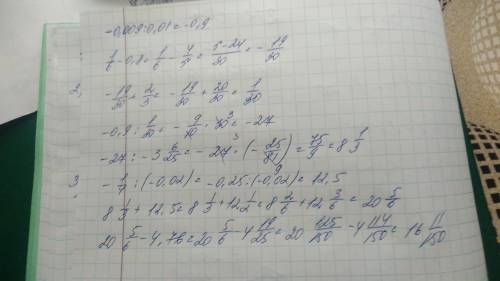 -0,009:0,01=-0,9
1/6-0,8=1/6-4/5=5-24/30=-19/30
2, -19/30+2/3=-19/30+20/30=1/30
-0,9:1/30=-9/10·30³=-27
-27:-3 6/25=-27·(-25/81)=75/9=8 1/3
3 -1/4:(-0,02)=-0,25:(-0,02)=12,5
8 1/3+12,5=8 1/3+12 1/2=8 2/6+12 3/6=20 5/6
20 5/6-4,76=20 5/6-4 19/25=20 125/150-4 114/150=16 11/150